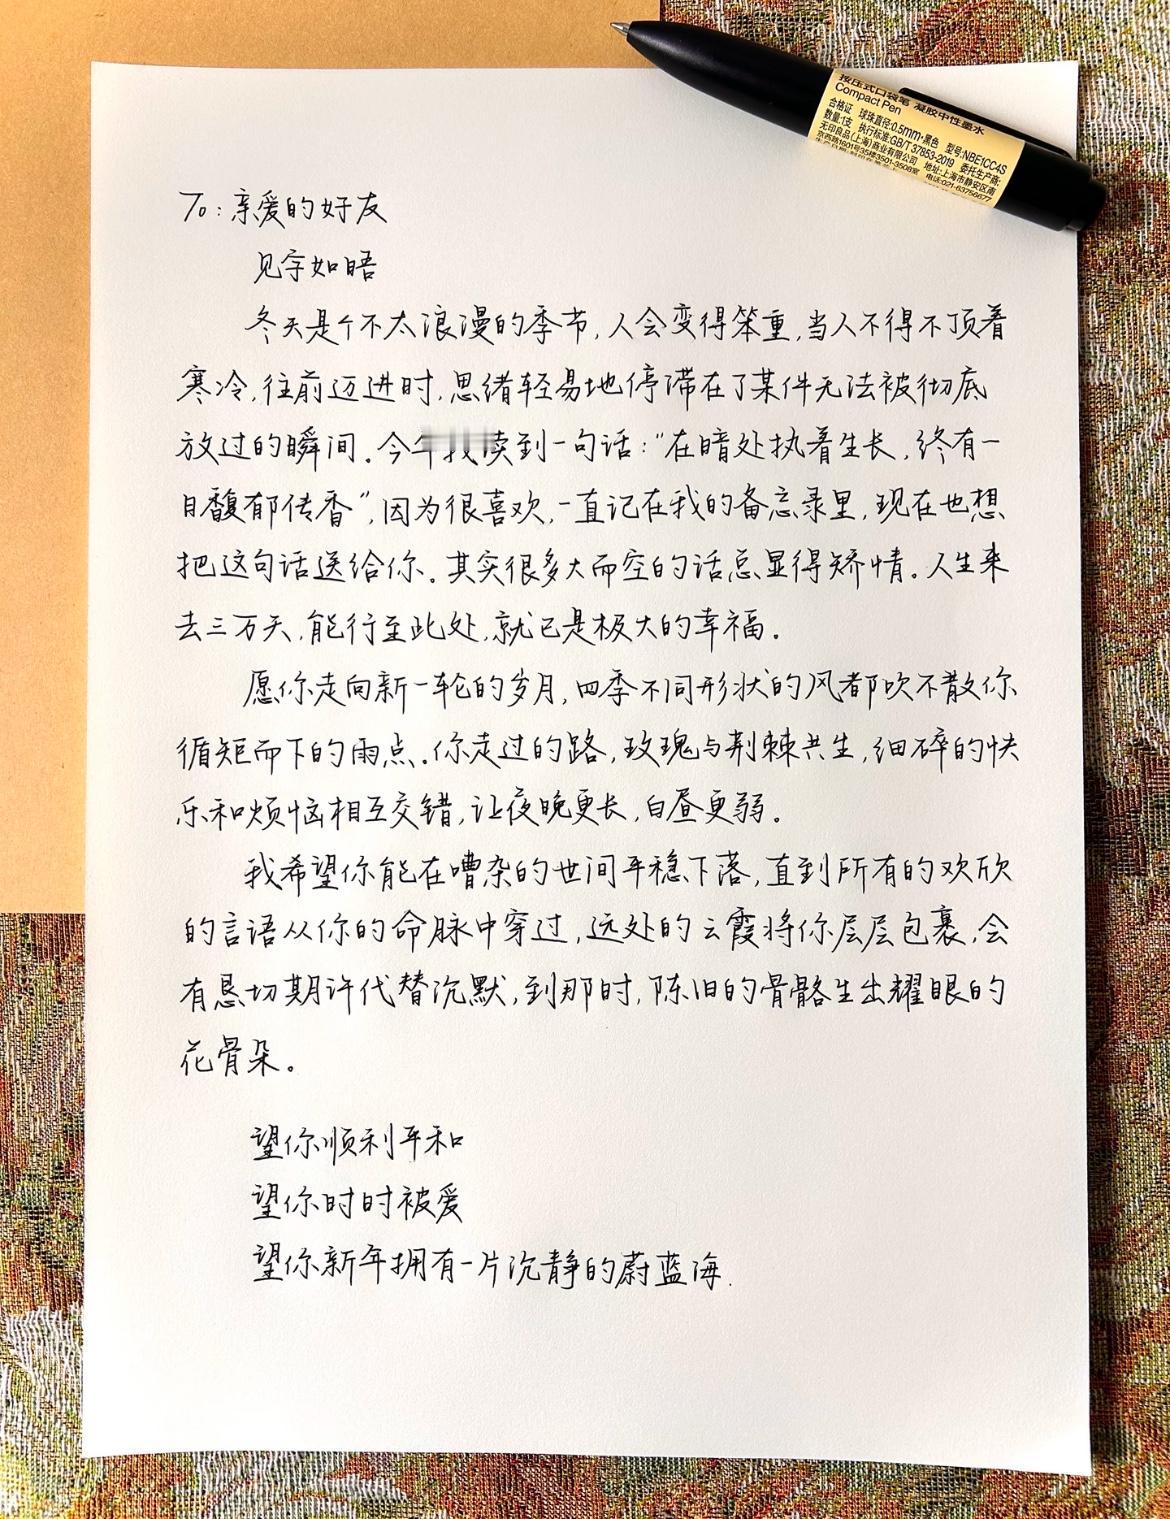 按压式口袋笔 凝胶中性墨水
Compact Pen
合格证 球珠直径:0.5mm·黑色 型号:NBE1CC4S
数量:1支 执行标准:GB/T 37853-2019 委托生产商:
无印良品(上海)商业有限公司 地址:上海市静安区南
京西路1601号35楼3501-3508室 电话:021-63756677
To:亲爱的好友
见字如晤
冬天是个不太浪漫的季节,人会变得笨重,当人不得不顶着
寒冷,往前迈进时,思绪轻易地停滞在了某件无法被彻底
放过的瞬间.今年我读到一句话:“在暗处执着生长,终有一
日馥郁传香”,因为很喜欢,一直记在我的备忘录里,现在也想
把这句话送给你.其实很多大而空的话总显得矫情。人生来
去三万天,能行至此处,就已是极大的幸福。
愿你走向新一轮的岁月,四季不同形状的风都吹不散你
循矩而下的雨点.你走过的路,玫瑰与荆棘共生,细碎的快
乐和烦恼相互交错,让夜晚更长,白昼更弱。
我希望你能在嘈杂的世间平稳下落,直到所有的欢欣
的言语从你的命脉中穿过,远处的云霞将你层层包裹,会
有恳切期许代替沉默,到那时,陈旧的骨骼生出耀眼的
花骨朵。
望你顺利平和
望你时时被爱
望你新年拥有一片沉静的蔚蓝海.